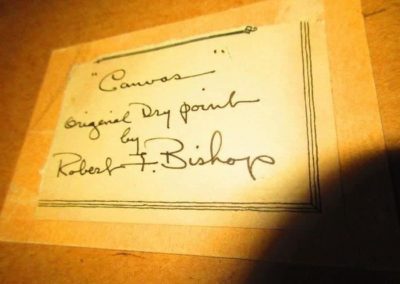 "Canvas"
Original Dry point
by
Robert F. Bishop